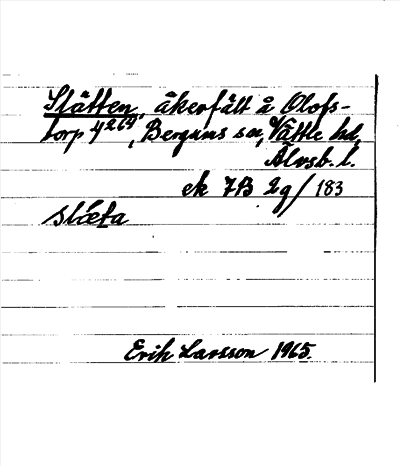 Slätten, åkerfält å Olofs-
torp 4²⁶⁴, Bergums sn, Vättle hd,
Älvsb. l.
ek 7B 2g/183
slǣta
Erik Larsson 1965.